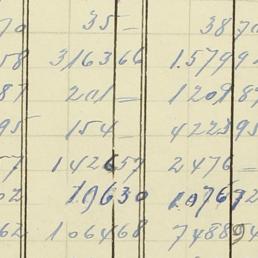 70 35 – 387
58 316366 15799
87 201 – 120987
95 154 – 422395
57 142657 2476 –
02 19630 107672
62 106468 748894